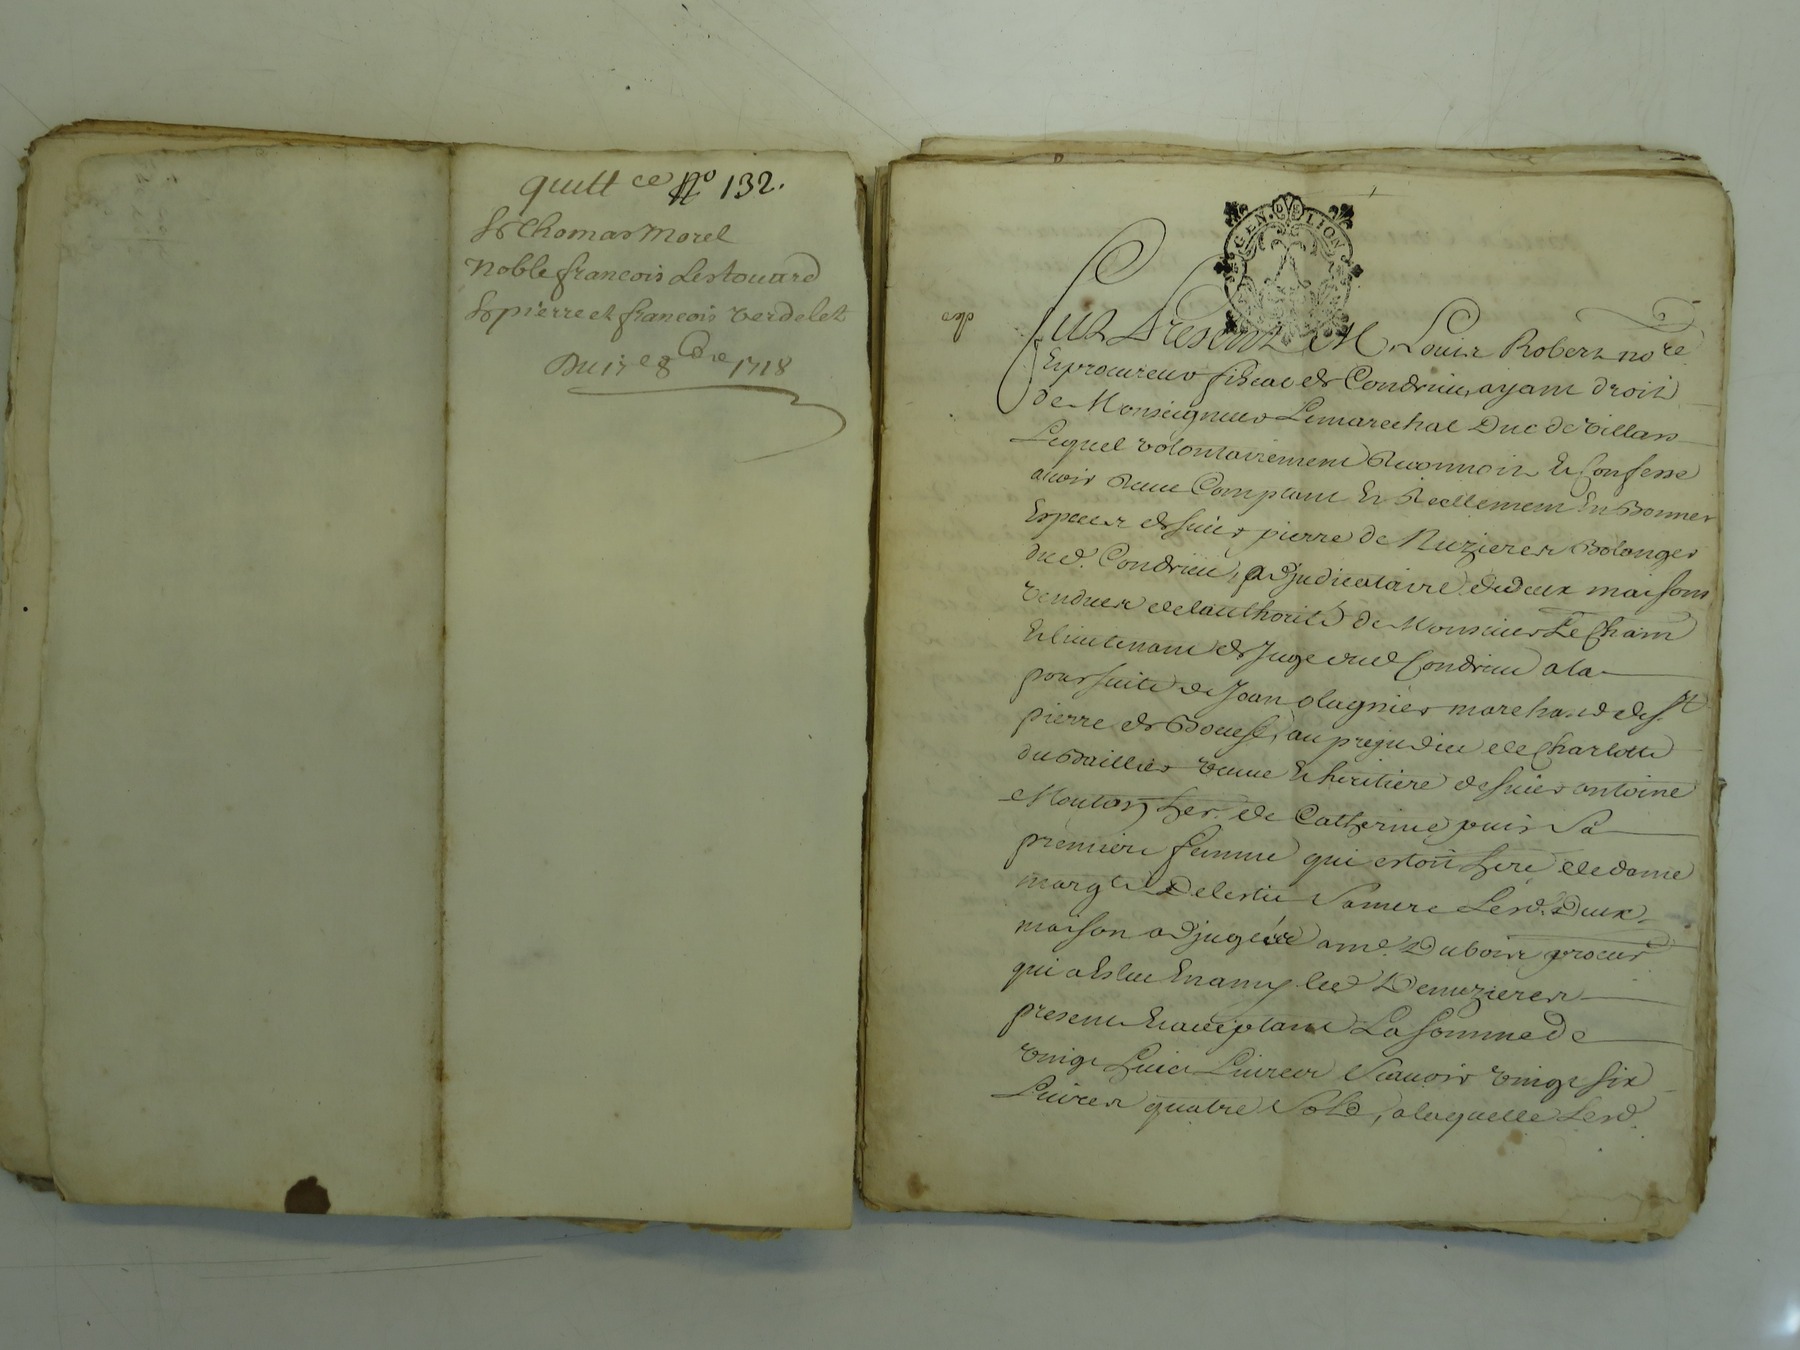 quitt ce No 132.
Sr Thomas Morel
Noble francois Lestouard
Sr pierre et francois Verdelet
Du 17e 8bre 1718
GEN. DE LION
exp
Fut Present Me Louis Robert nore
Et procureur fiscal de Condrieu, ayant droit
de Monseigneur Le marechal Duc de Villars
Lequel volontairement Reconnoit Et Confesse
avoir Receu Comptant Et Reellement En Bonnes
Especes de sieur pierre de Nuzieres Bolanger
dud. Condrieu, adjudicataire de deux maisons
vendues de lauthorité de Monsieur Le Chain
Et lieutenant de Juge dud Condrieu a la
poursuite de Jean olagnier marchand de St
pierre de Boeuf, au prejudice de Charlotte
du Baillier veuve Et heritiere de sieur antoine
Mouton her. de Catherine puis Sa
premiere femme qui estoit here de dame
margte Delestie Sa mere Lesd. Deux
maison adjugées a me. Dubois procur
qui a Eslue En amy led Denuzieres
present Et acceptant La somme de
vingt huict Livres Scavoir vingt six
Livres quatre Sold, a laquelle Lesd.